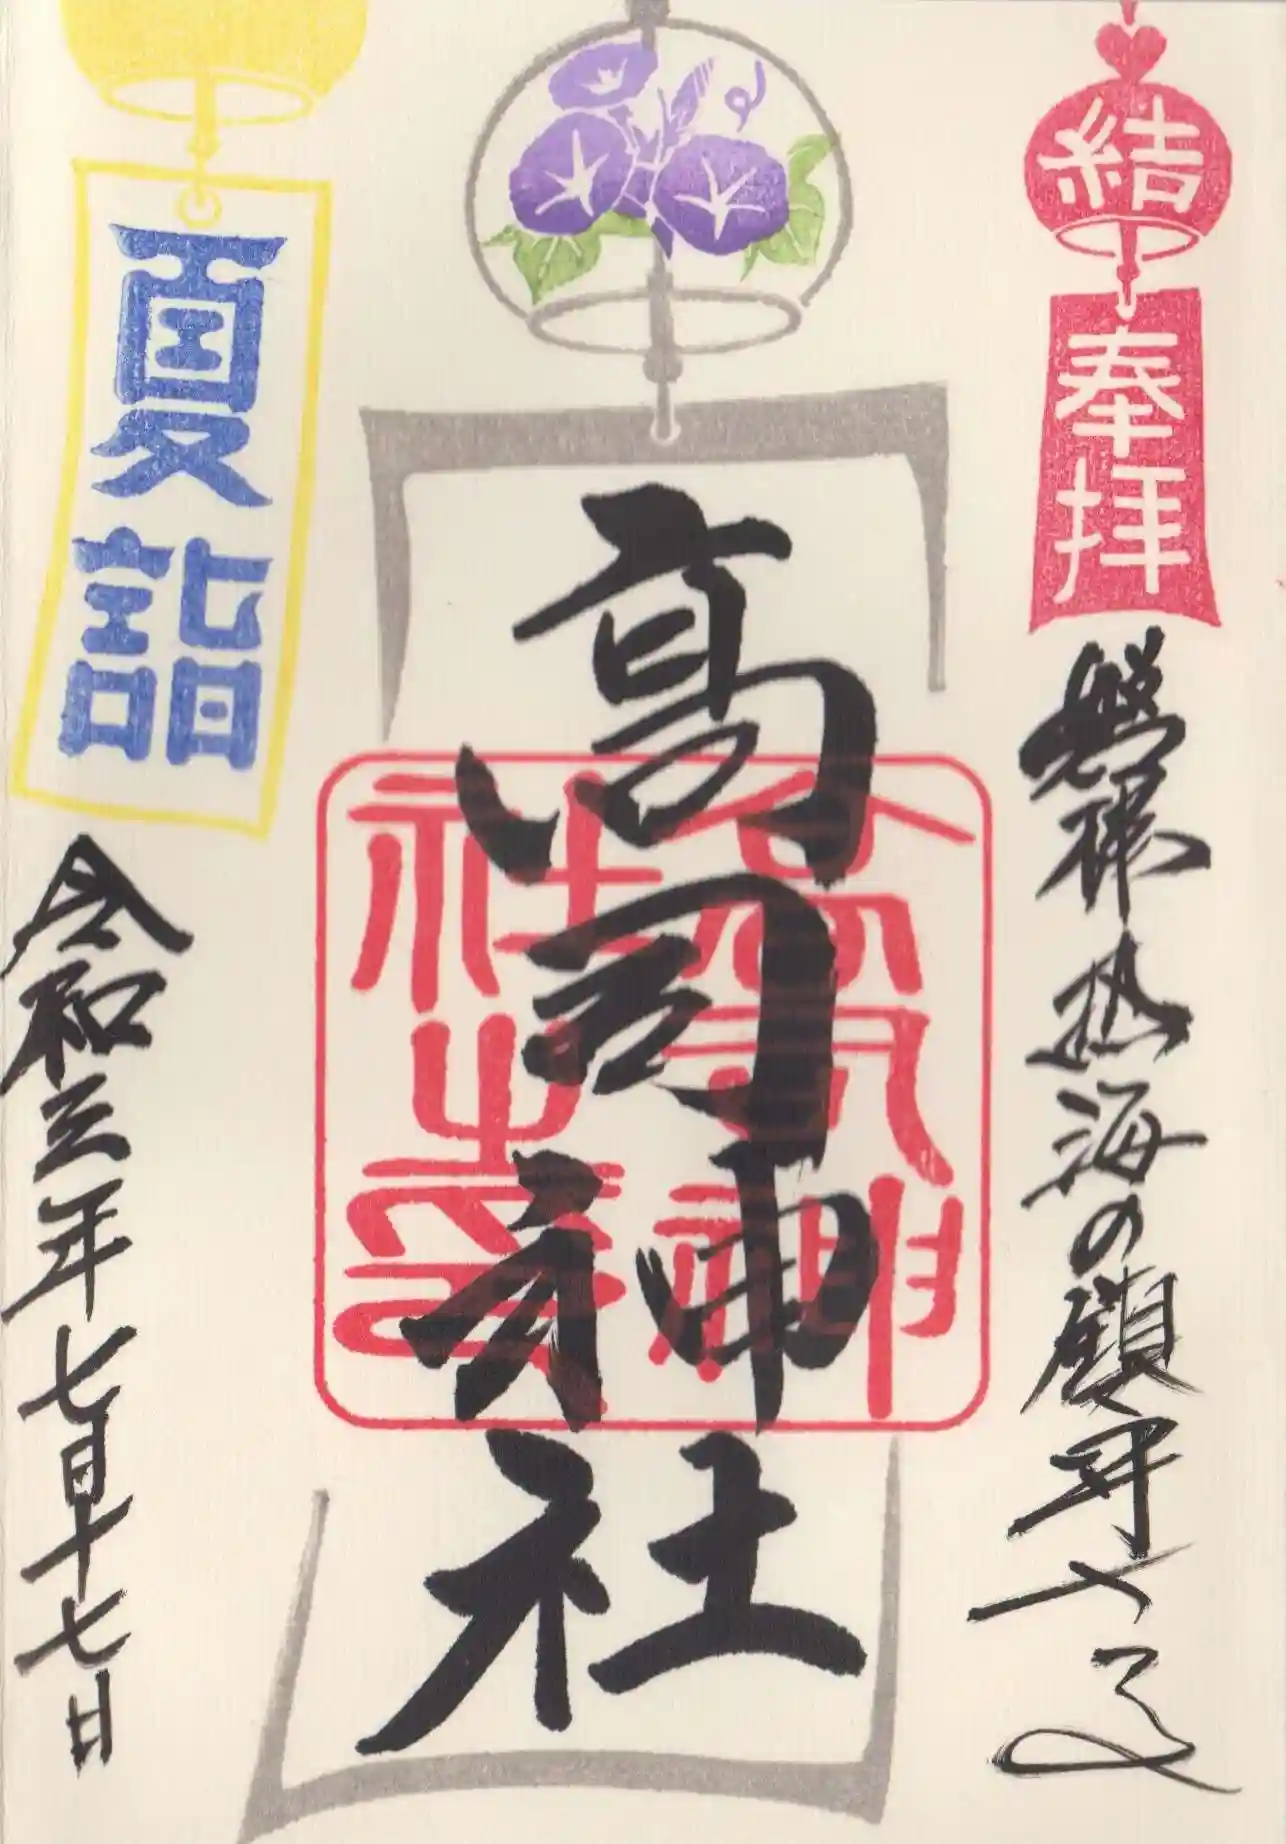 結
奉拝
磐梯熱海の願
高司神社
高司神
社之印
夏詣
令和三年七月十七日